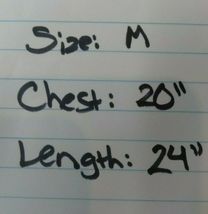 Size: M
Chest: 20"
Length: 24"